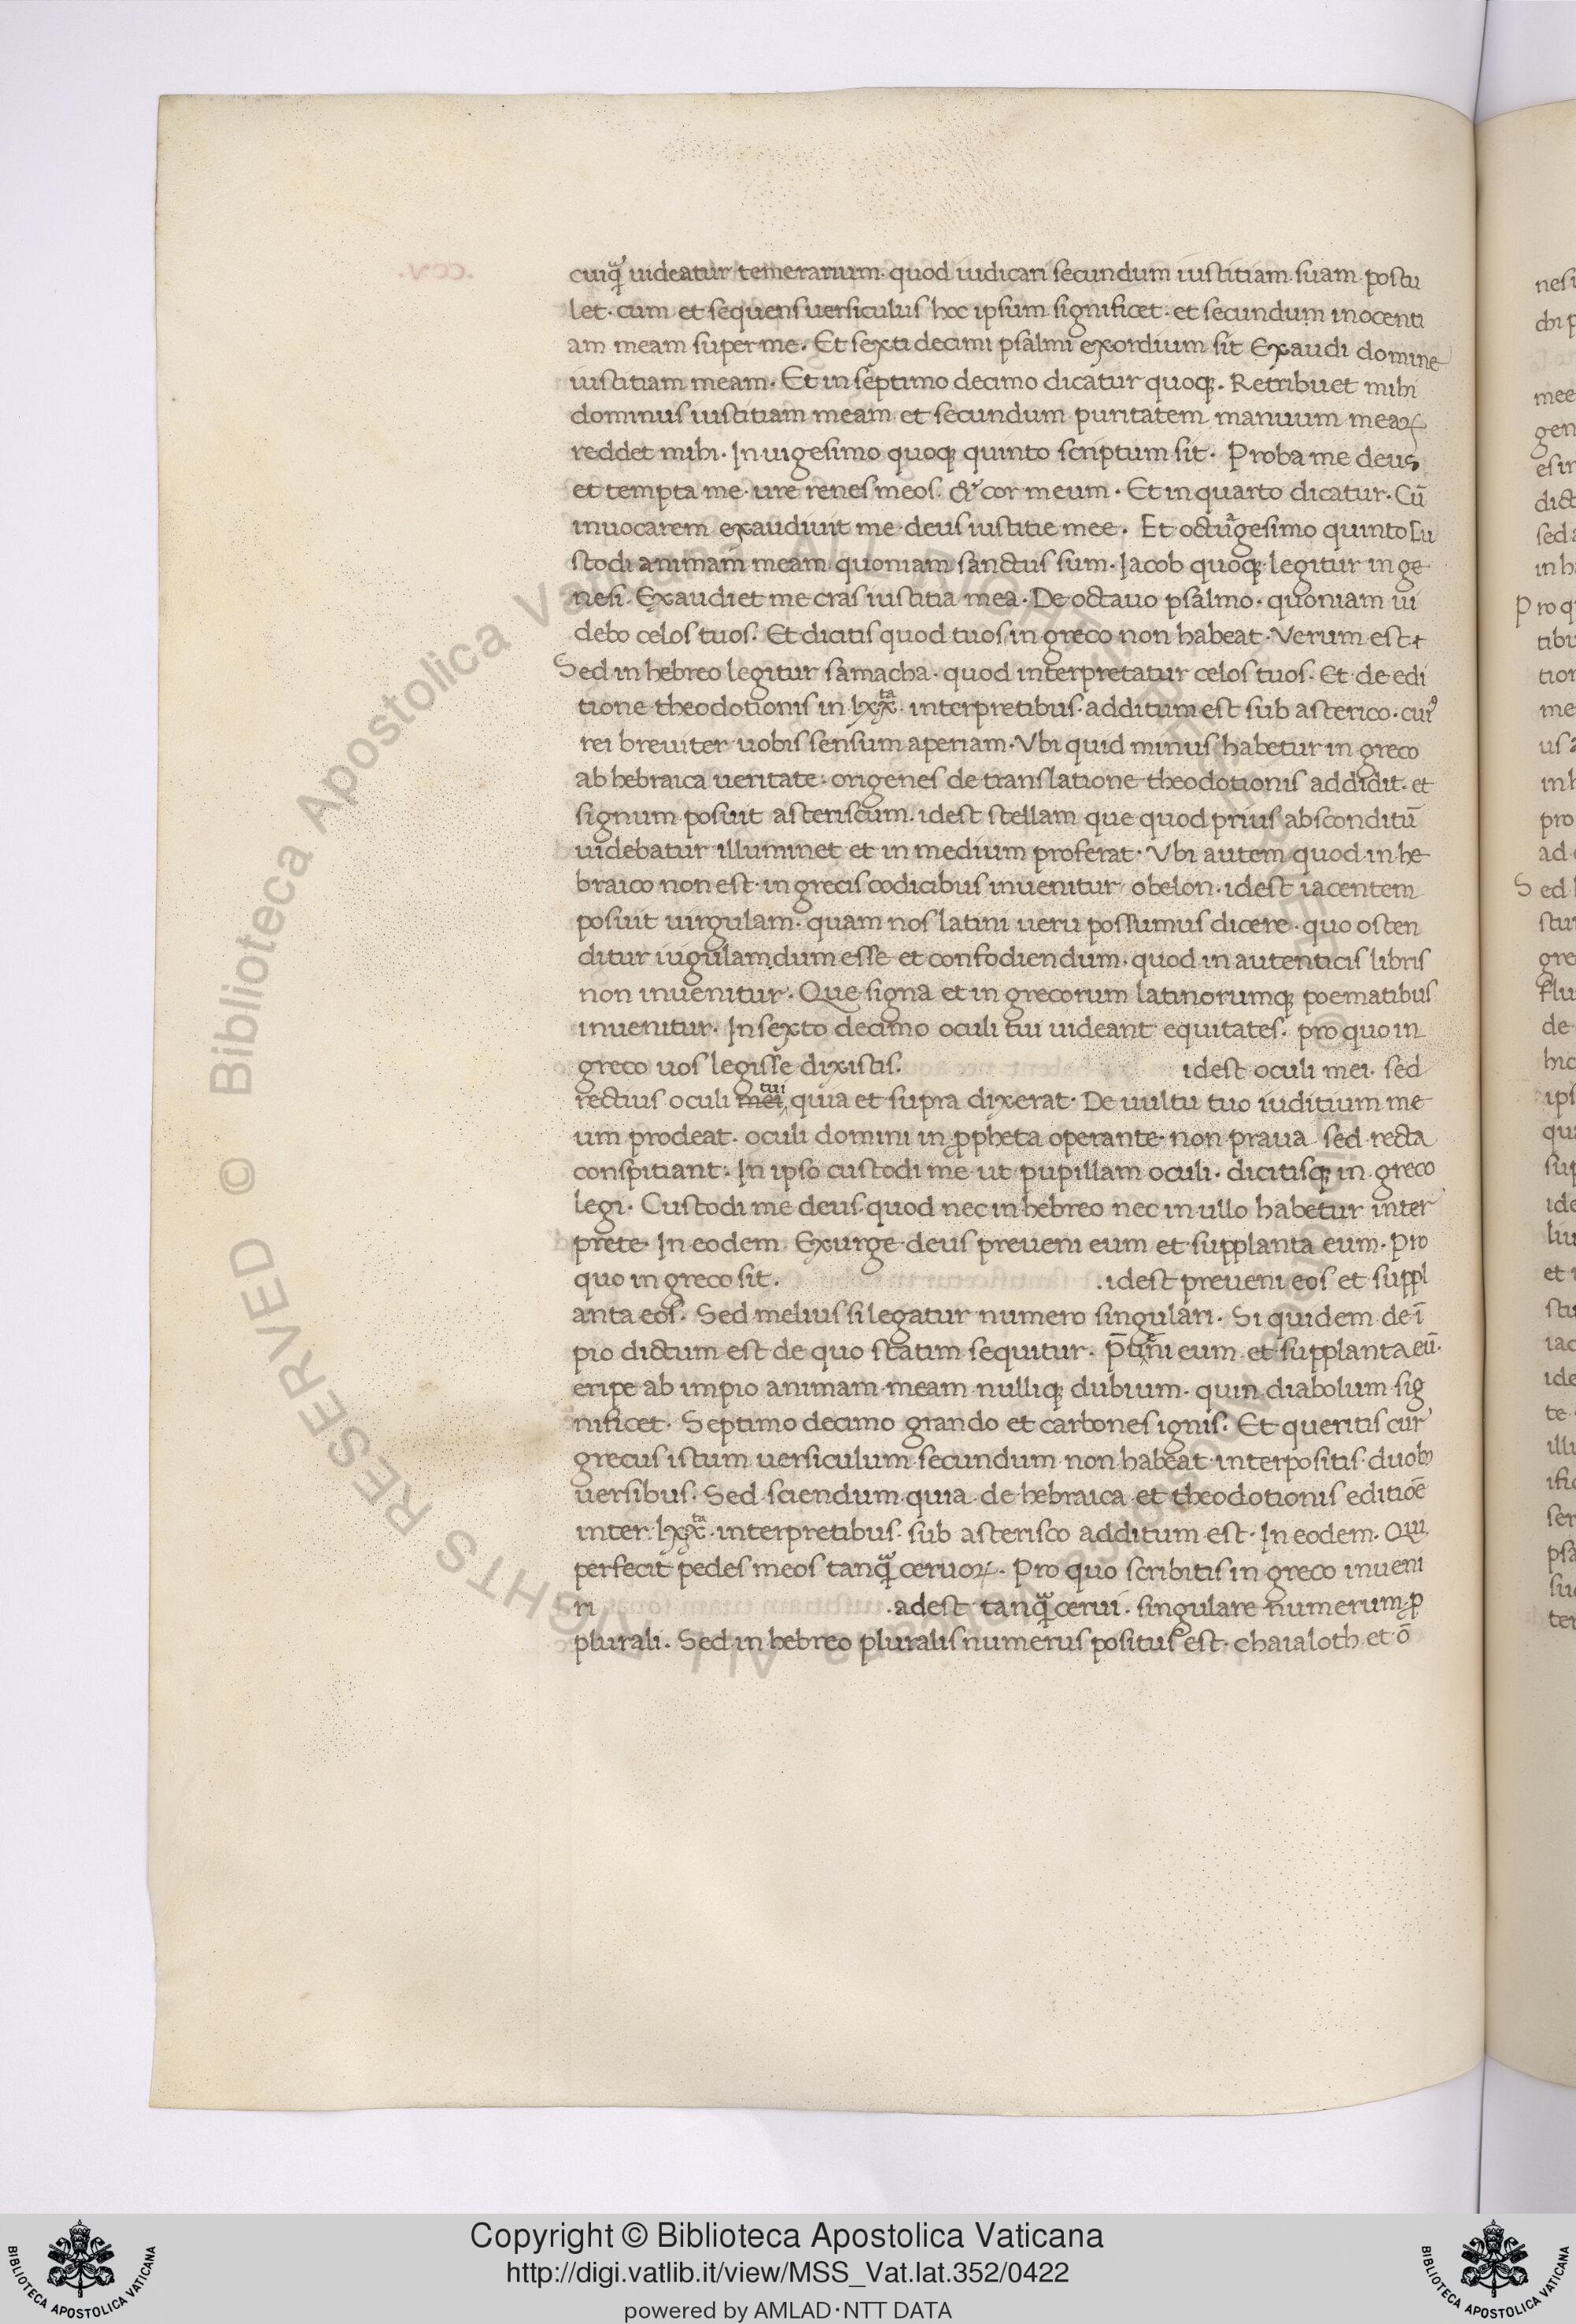 cuiq̃ uideatur temerarium. quod iudicari secundum iustitiam suam postu
let. cum et sequens uersiculus hoc ipsum significet. et secundum inocenti
am meam super me. Et sexti decimi psalmi exordium sit Exaudi domine
iustitiam meam. Et in septimo decimo dicatur quoqꝫ. Retribuet mihi
dominus iustitiam meam et secundum puritatem manuum meaꝝ
reddet mihi. In uigesimo quoqꝫ quinto scriptum sit. Proba me deus
et tempta me. ure renes meos. & cor meum. Et in quarto dicatur. Cū
inuocarem exaudiuit me deus iustitie mee. Et octuagesimo quinto Cu
stodi animam meam quoniam sanctus sum. Iacob quoqꝫ legitur in ge
nesi. Exaudiet me cras iustitia mea. De octauo psalmo. quoniam ui
debo celos tuos. Et dicitis quod tuos in greco non habeat. Verum est.
Sed in hebreo legitur samacha. quod interpretatur celos tuos. Et de edi
tione theodotionis in lxxta. interpretibus. additum est sub asterico. cuiꝰ
rei breuiter uobis sensum aperiam. Vbi quid minus habetur in greco
ab hebraica ueritate. origenes de translatione theodotionis addidit. et
signum posuit asteriscum. idest stellam que quod prius absconditū
uidebatur illuminet et in medium proferat. Vbi autem quod in he
braico non est. in grecis codicibus inuenitur obelon. idest iacentem
posuit uirgulam. quam nos latini ueru possumus dicere. quo osten
ditur iugulamdum esse et confodiendum. quod in autenticis libris
non inuenitur. Que signa et in grecorum latinorumqꝫ poematibus
inuenitur. In sexto decimo oculi tui uideant equitates. pro quo in
greco uos legisse dixistis. idest oculi mei. sed
rectius oculi mei tui quia et supra dixerat. De uultu tuo iuditium me
um prodeat. oculi domini in ꝓpheta operante. non praua sed recta
conspitiant. In ipso custodi me ut pupillam oculi. dicitisqꝫ in greco
legi. Custodi me deus. quod nec in hebreo nec in ullo habetur inter
prete. In eodem. Exurge deus preueni eum et supplanta eum. Pro
quo in greco sit. .idest preueni eos et suppl
anta eos. Sed melius si legatur numero singulari. Si quidem de ī
pio dictum est de quo statim sequitur. eum. et supplanta eū.
eripe ab impio animam meam nulliqꝫ dubium. quin diabolum sig
nificet. Septimo decimo grando et carbones ignis. Et queritis cur
grecus istum uersiculum secundum non habeat interpositis duobꝰ
uersibus. Sed sciendum quia de hebraica et theodotionis editioē
inter lxxta. interpretibus. sub asterisco additum est. In eodem. Qui
perfecit pedes meos tanq̃ ceruoꝝ. Pro quo scribitis in greco inueni
ri .adest tanq̃ cerui. singulare numerum ꝓ
plurali. Sed in hebreo pluralis numerus positus est. chaialoth et ō
.CCV.
Copyright © Biblioteca Apostolica Vaticana
http://digi.vatlib.it/view/MSS_Vat.lat.352/0422
powered by AMLAD·NTT DATA
BIBLIOTECA APOSTOLICA VATICANA
BIBLIOTECA APOSTOLICA VATICANA